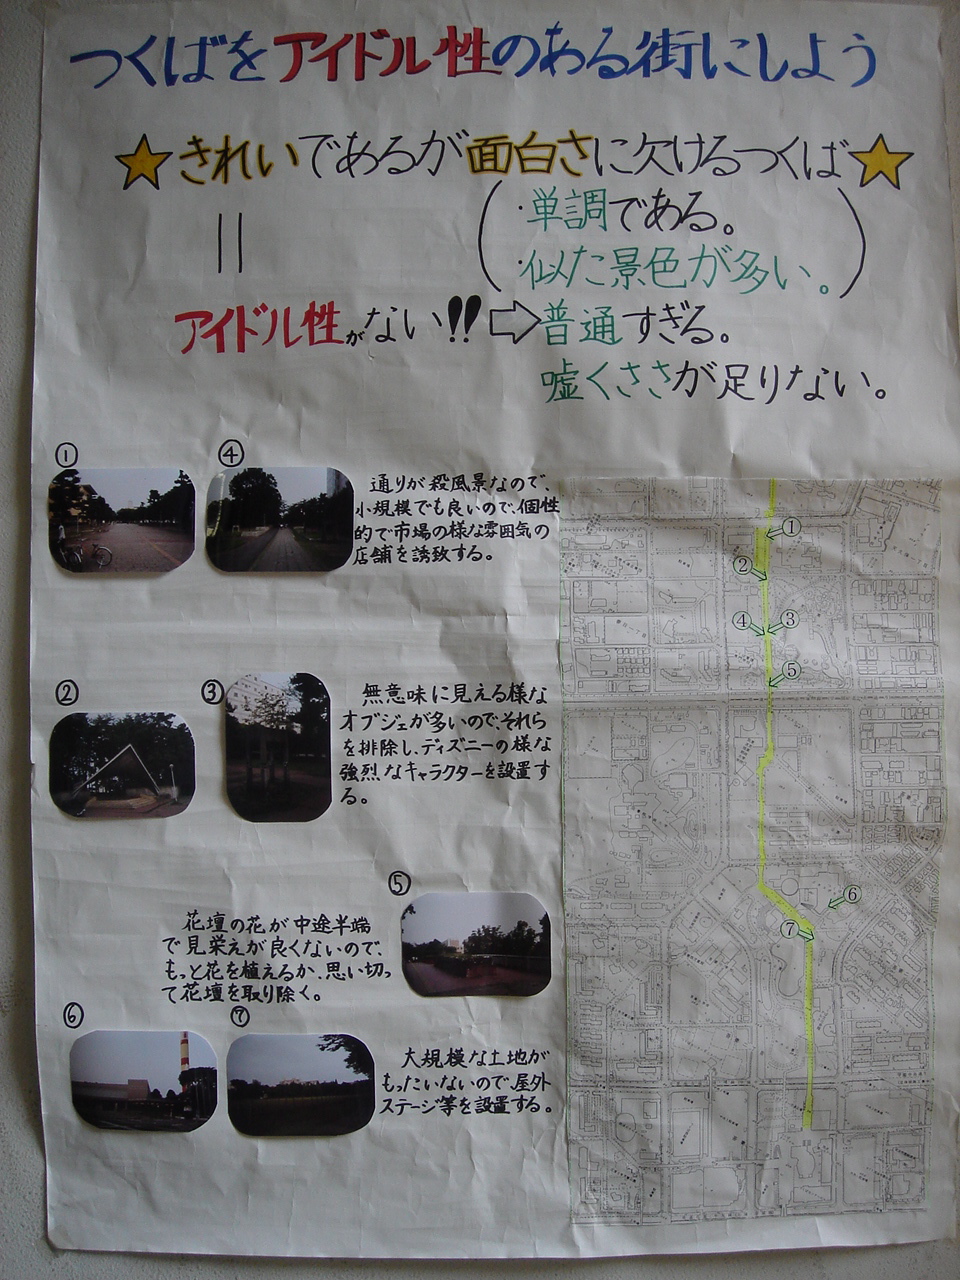 つくばをアイドル性のある街にしよう
★きれいであるが面白さに欠けるつくば★
・単調である。
・似た景色が多い。
アイドル性がない!!⇨普通すぎる。
嘘くささが足りない。
① ④
通りが殺風景なので、
小規模でも良いので、個性
的で市場の様な雰囲気の
店舗を誘致する。
② ③
無意味に見える様な
オブジェが多いので、それら
を排除し、ディズニーの様な
強烈なキャラクターを設置す
る。
⑤
花壇の花が中途半端
で見栄えが良くないので、
もっと花を植えるか、思い切っ
て花壇を取り除く。
⑥ ⑦
大規模な土地が
もったいないので、屋外
ステージ等を設置する。
①
②
④ ③
⑤
⑥
⑦